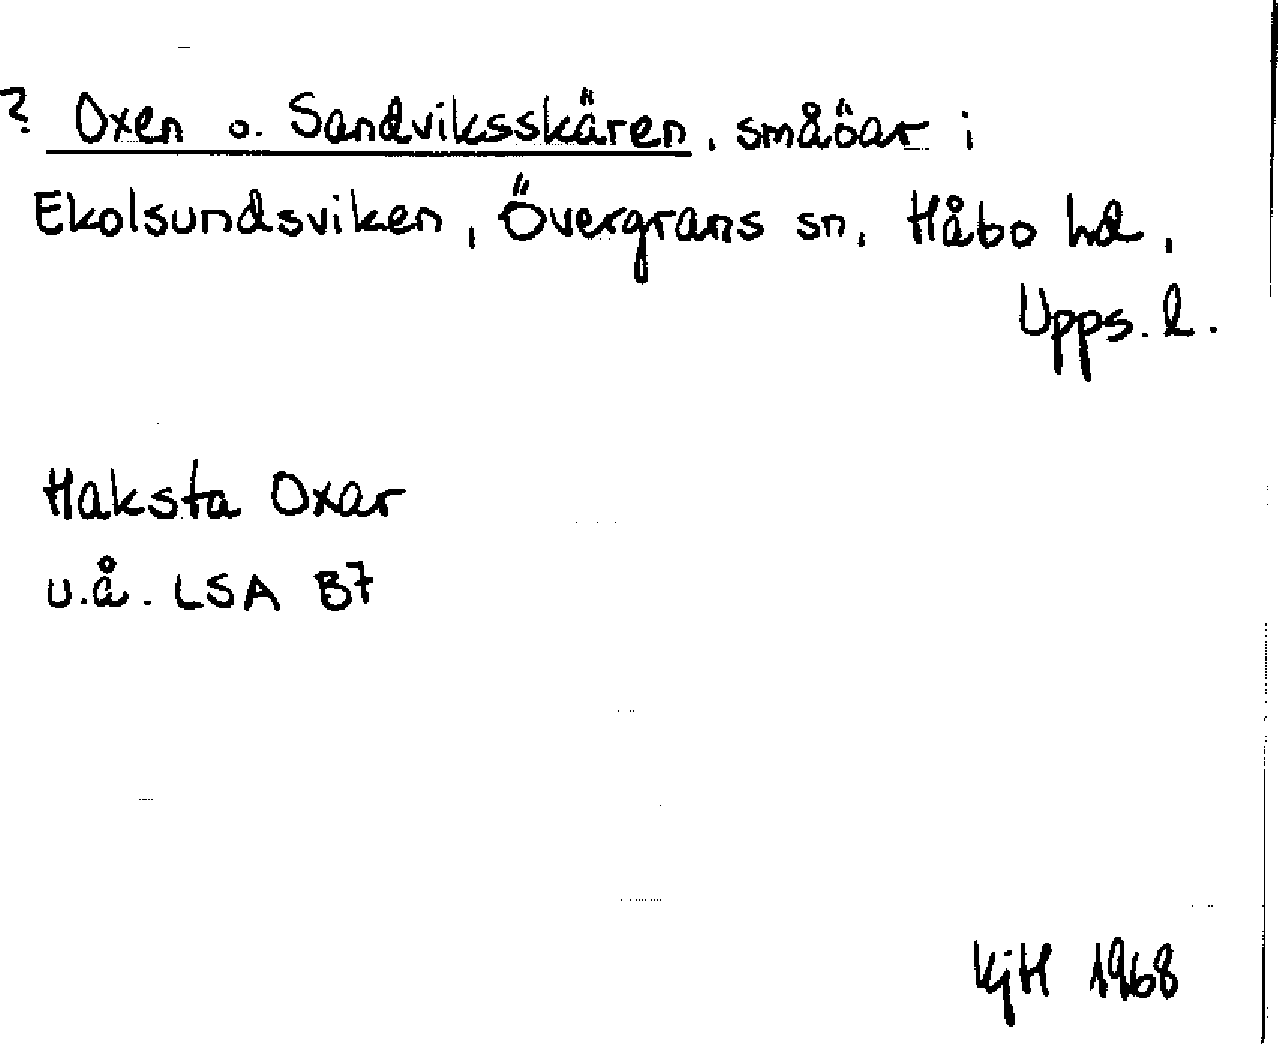 ? Oxen o. Sandviksskären, småöar i
Ekolsundsviken, Övergrans sn, Håbo hd,
Upps. l.
Haksta Oxar
u.å. LSA B7
KjH 1968